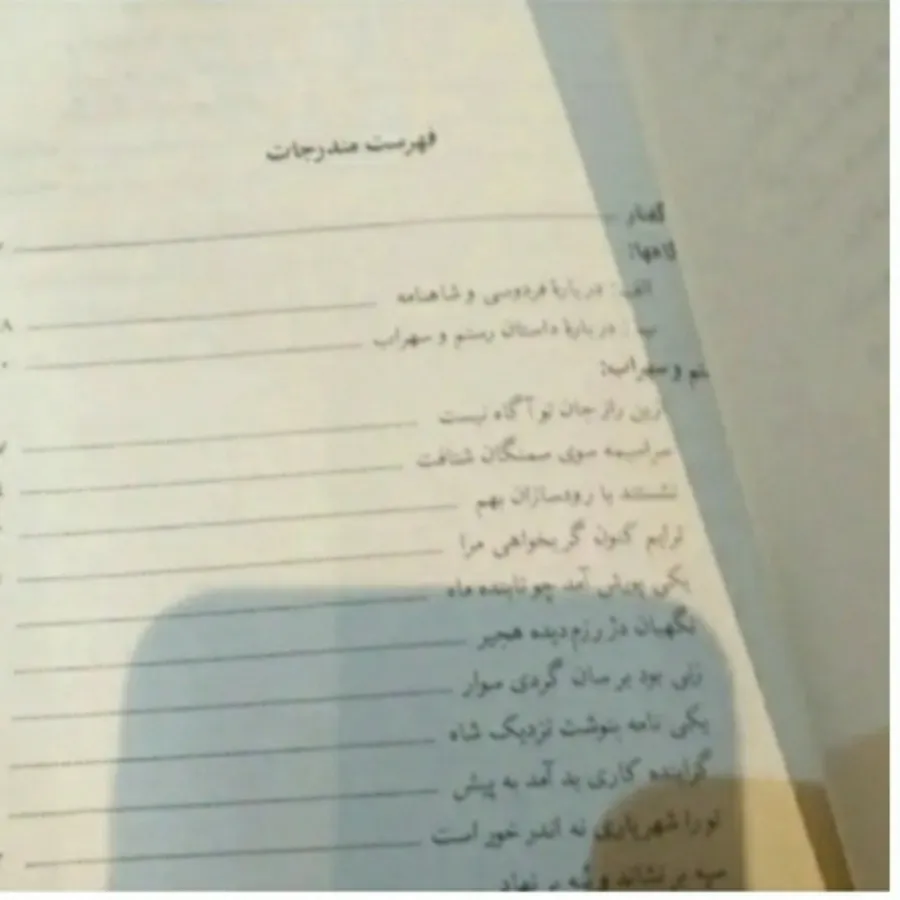 فهرست مندرجات
گفتار
لام‌ها:
الف: دربارهٔ فردوسی و شاهنامه ۸
ب: دربارهٔ داستان رستم و سهراب
تم و سهراب:
ازین راز جان تو آگاه نیست
سراسیمه سوی سمنگان شتافت
نشستند با رودسازان بهم
ترایم کنون گر بخواهی مرا
یکی پورش آمد چو تابنده ماه
نگهبان دژ رزم‌دیده هجیر
زنی بود بر سان گردی سوار
یکی نامه بنوشت نزدیک شاه
گزاینده کاری بد آمد به پیش
تو را شهریاری نه اندر خور است
سپه بر نشاند و بنه بر نهاد